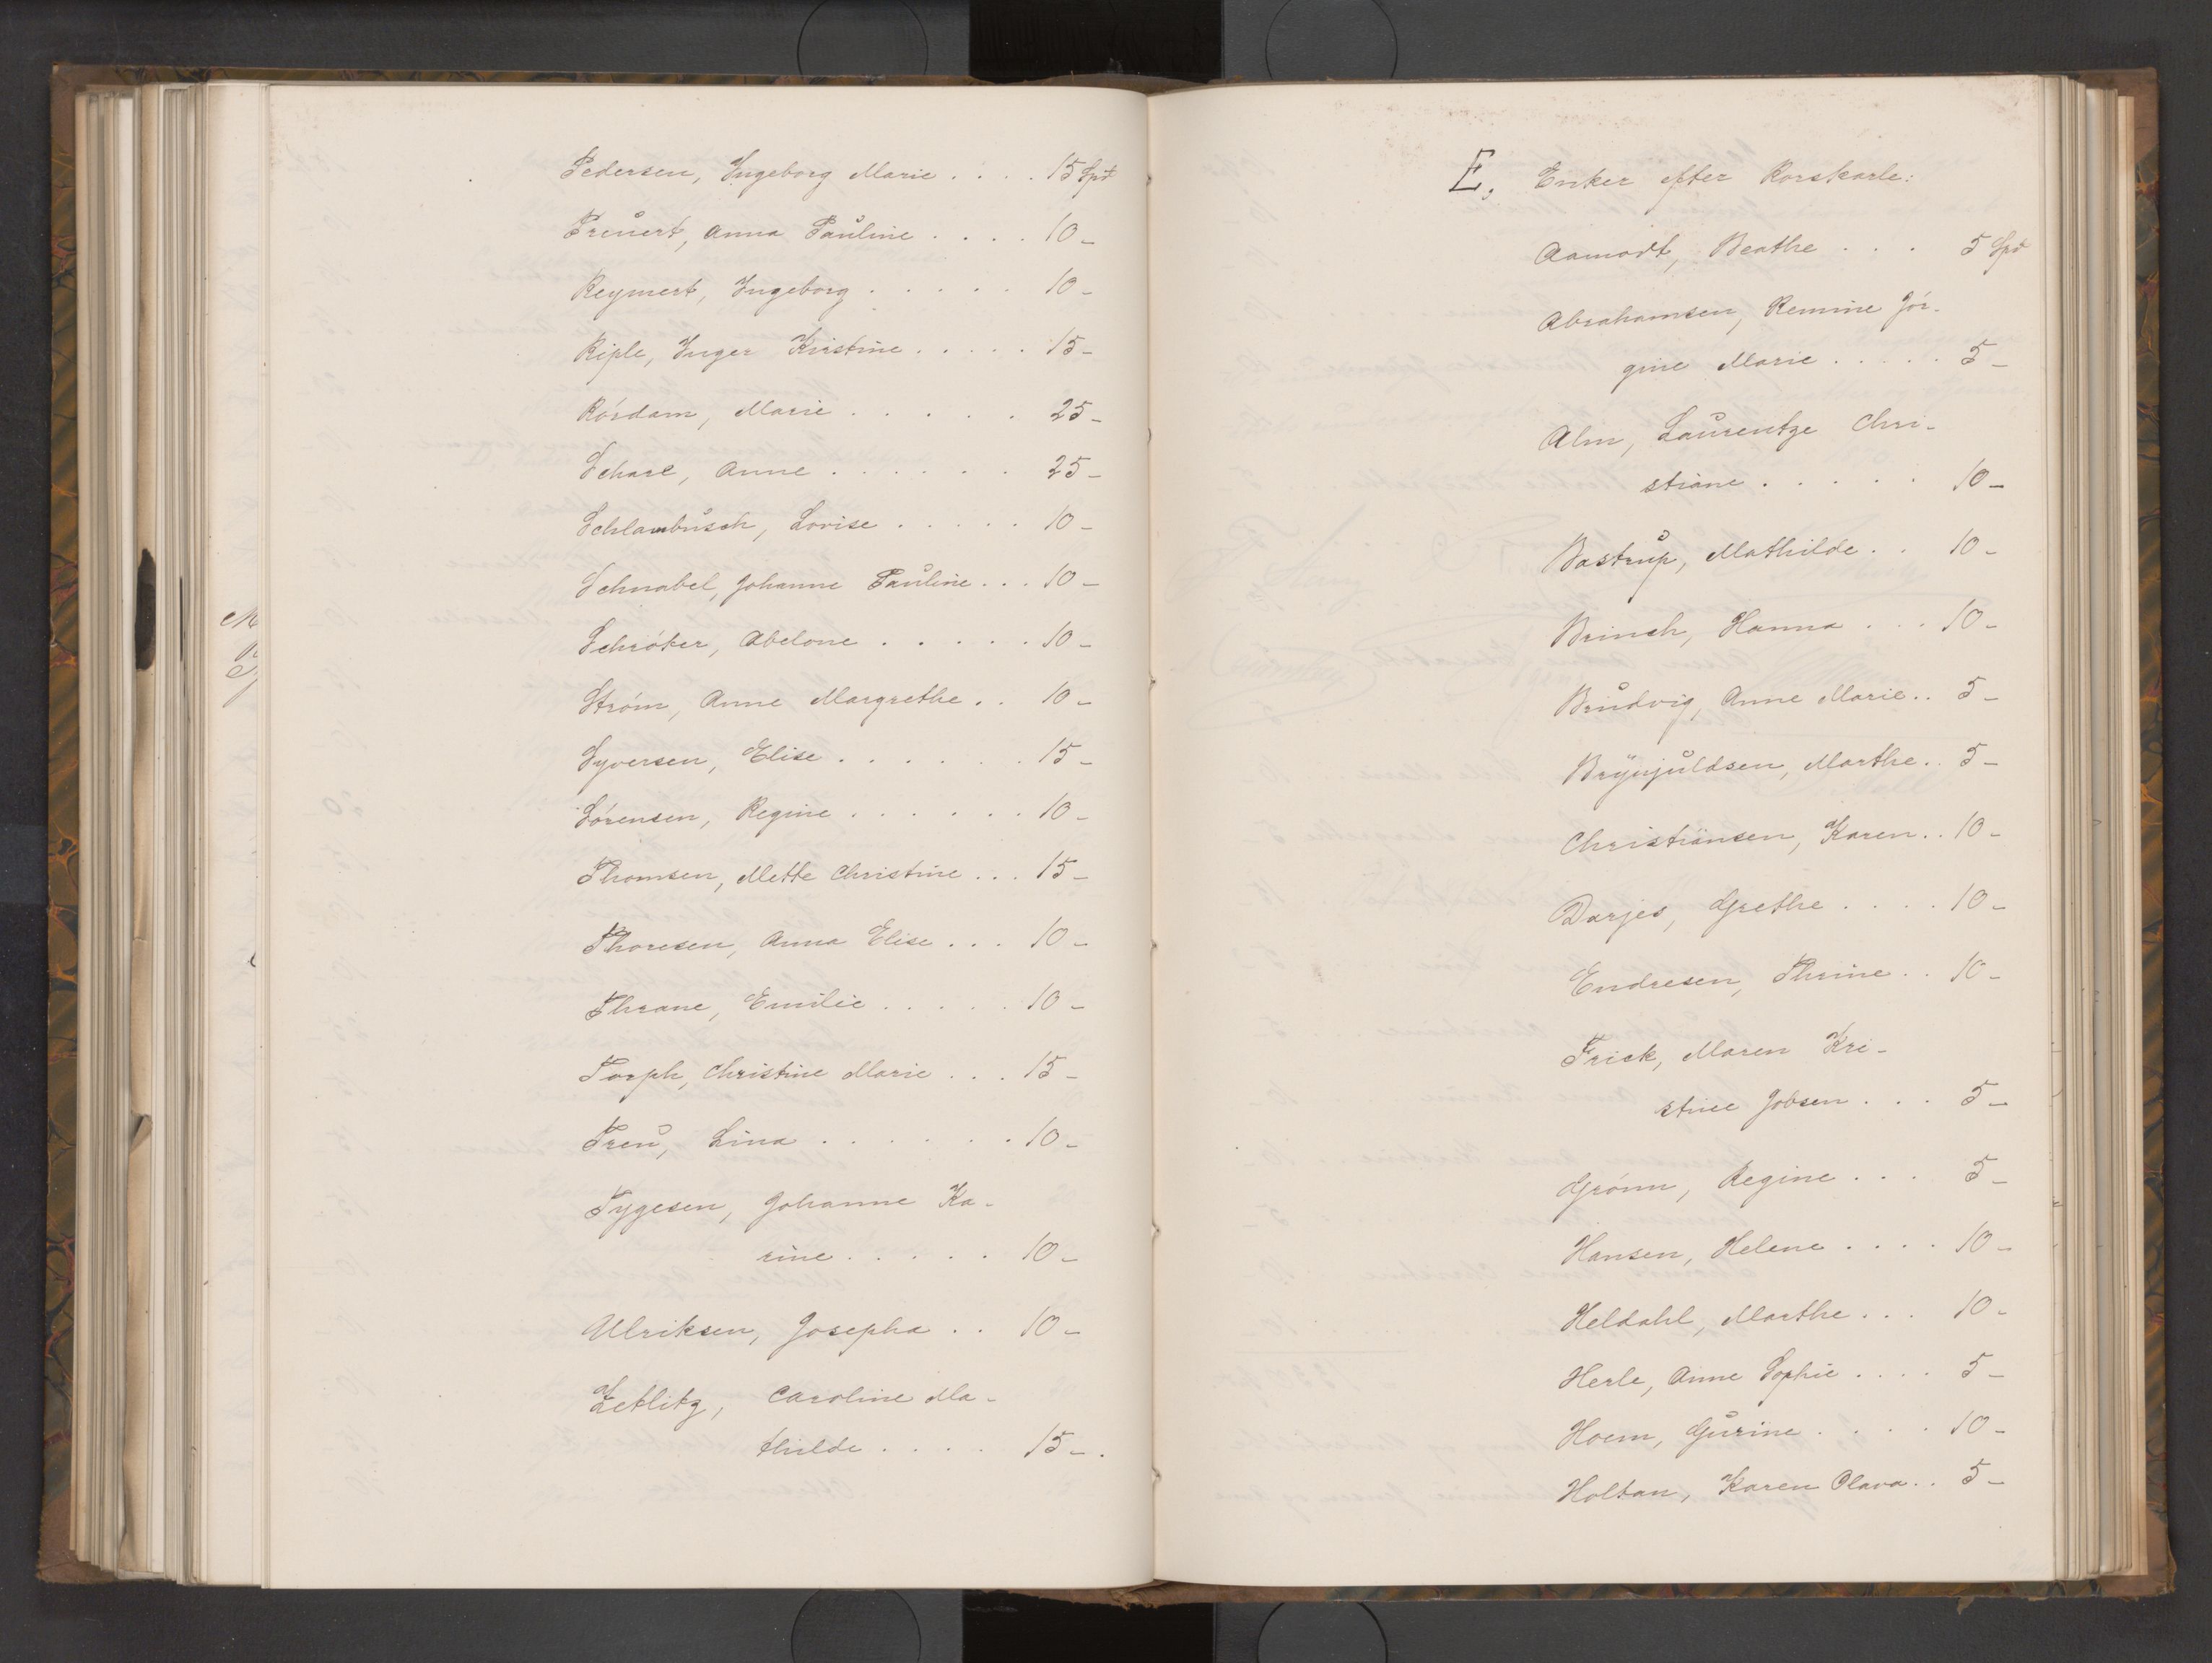 Pedersen, Ingeborg Marie . . . . 15 Spd
Preuert, Anna Pauline . . . . 10 -
Reymert, Ingeborg . . . . . 10 -
Riple, Inger Kirstine . . . . . 15 -
Rórdam, Marie . . . . . . 25 -
Schare, Anne . . . . . . 25 -
Schlambusch, Lovise . . . . . 10 -
Schnabel, Johanne Pauline . . . 10 -
Schróter, Abelone . . . . . 10 -
Stróm, Anne Margrethe . . 10 -
Syversen, Elise . . . . . . 15 -
Sórensen, Regine . . . . . . 10 -
Thomsen, Mette Christine . . . 15 -
Thoresen, Anna Elise . . . 10 -
Thrane, Emilie . . . . . 10 -
Torph, Christine Marie . . . 15 -
Treu, Lina . . . . . . . 10 -
Tygesen, Johanne Ka-
rine . . . . . 10 -
Ulriksen, Josepha . . 10 -
Zetlitz, Caroline Ma-
thilde . . . . 15 - .
E, Enker efter Korskarle:
Aamodt, Beathe . . . 5 Spd
Abrahamsen, Remine Jór-
gine Marie . . . . . 5 -
Alm, Laurentze Chri-
stiane . . . . . 10 -
Bastrup, Mathilde . . 10 -
Brinch, Hanna . . . 10 -
Brudvig, Anne Marie . . 5 -
Brynjuldsen, Marthe . . 5 -
Christiansen, Karen . . 10 -
Darjes, Grethe . . . . 10 -
Endresen, Thrine . . 10 -
Frick, Maren Kri-
stine Jobsen . . . 5 -
Grónn, Regine . . . 5 -
Hansen, Helene . . . . 10 -
Heldahl, Marthe . . . 10 -
Herle, Anne Sophie . . . . 5 -
Hoem, Gurine . . . . 10 -
Holtan, Karen Olava . . 5 -